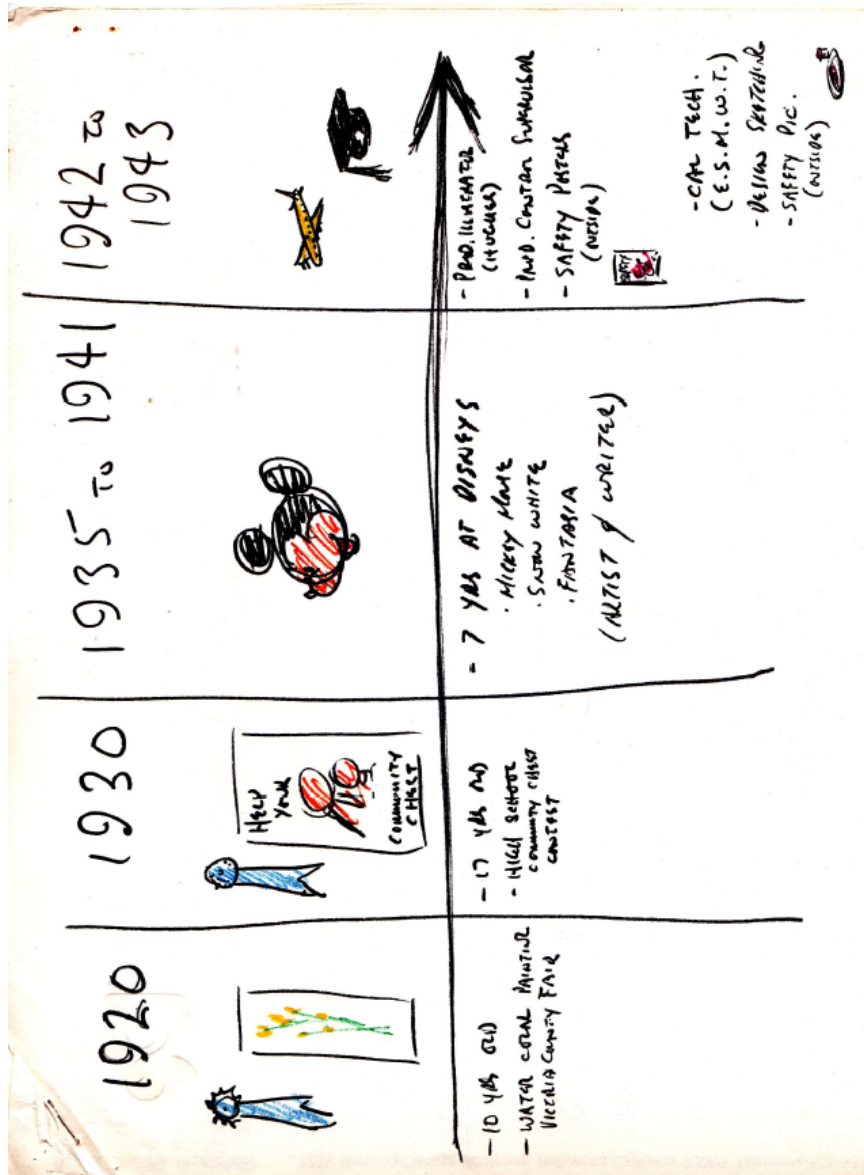 1920
- 10 YRS OLD
- WATER COLOR PAINTING
COUNTY FAIR
1930
HELP
YOUR
COMMUNITY
CHEST
- 17 YRS OLD
- HIGH SCHOOL
COMMUNITY CHEST
CONTEST
1935 TO 1941
- 7 YRS AT DISNEYS
· MICKEY MOUSE
· SNOW WHITE
· FANTASIA
(ARTIST & WRITER)
1942 TO
1943
- PROD. ILLUSTRATOR
(HUGHES)
- PROD. CONTROL SUPERVISOR
- SAFETY POSTERS
(OUTSIDE)
SAFETY
- CAL TECH.
(E.S.M.W.T.)
- DESIGN SKETCHING
- SAFETY PIC.
(OUTSIDE)